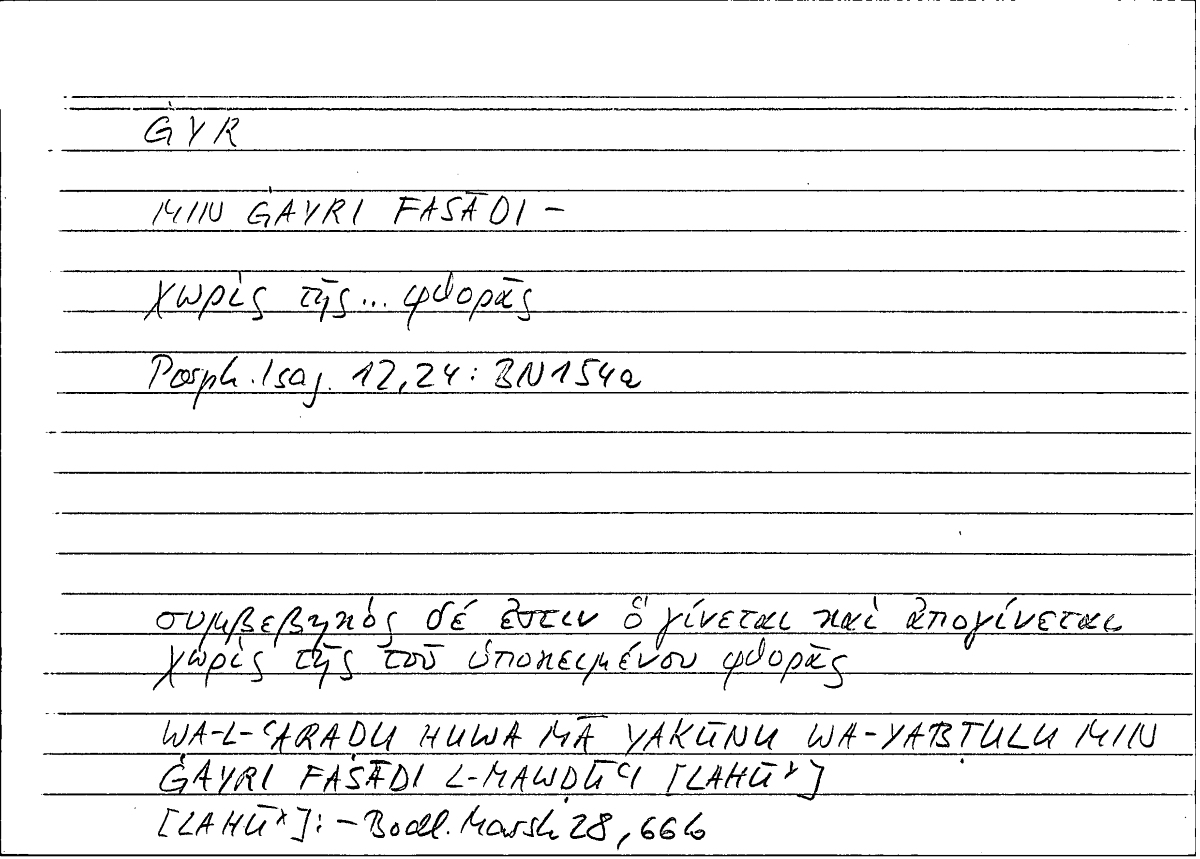 ĠYR
MIN ĠAYRI FASĀDI –
χωρὶς τῆς... φθορᾶς
Porph. Isag. 12,24: BN154a
συμβεβηκός δέ ἐστιν ὃ γίνεται καὶ ἀπογίνεται
χωρὶς τῆς τοῦ ὑποκειμένου φθορᾶς
WA-L-ʿARAḌU HUWA MĀ YAKŪNU WA-YABṬULU MIN
ĠAYRI FASĀDI L-MAWḌŪʿI [LAHŪˣ]
[LAHŪˣ]: – Bodl. Marsh 28, 66b